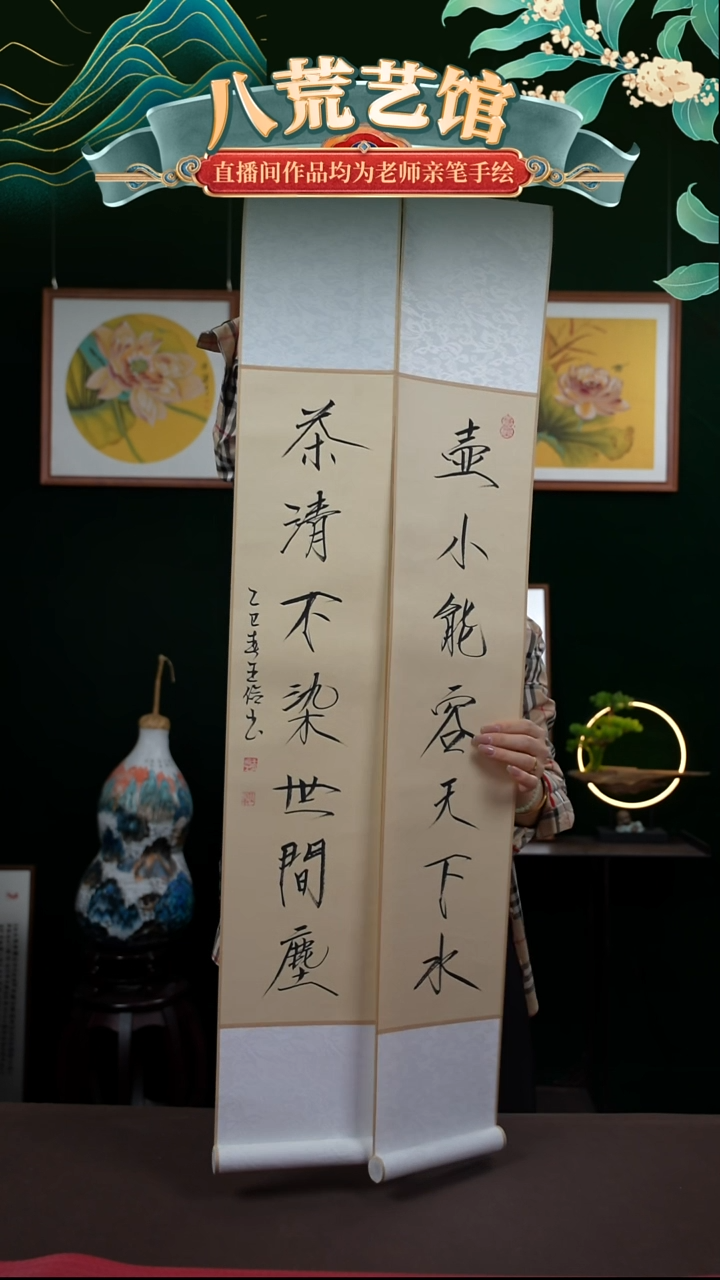 八荒艺馆
直播间作品均为老师亲笔手绘
壺小能容天下水
茶清不染世間塵
乙巳春王信书